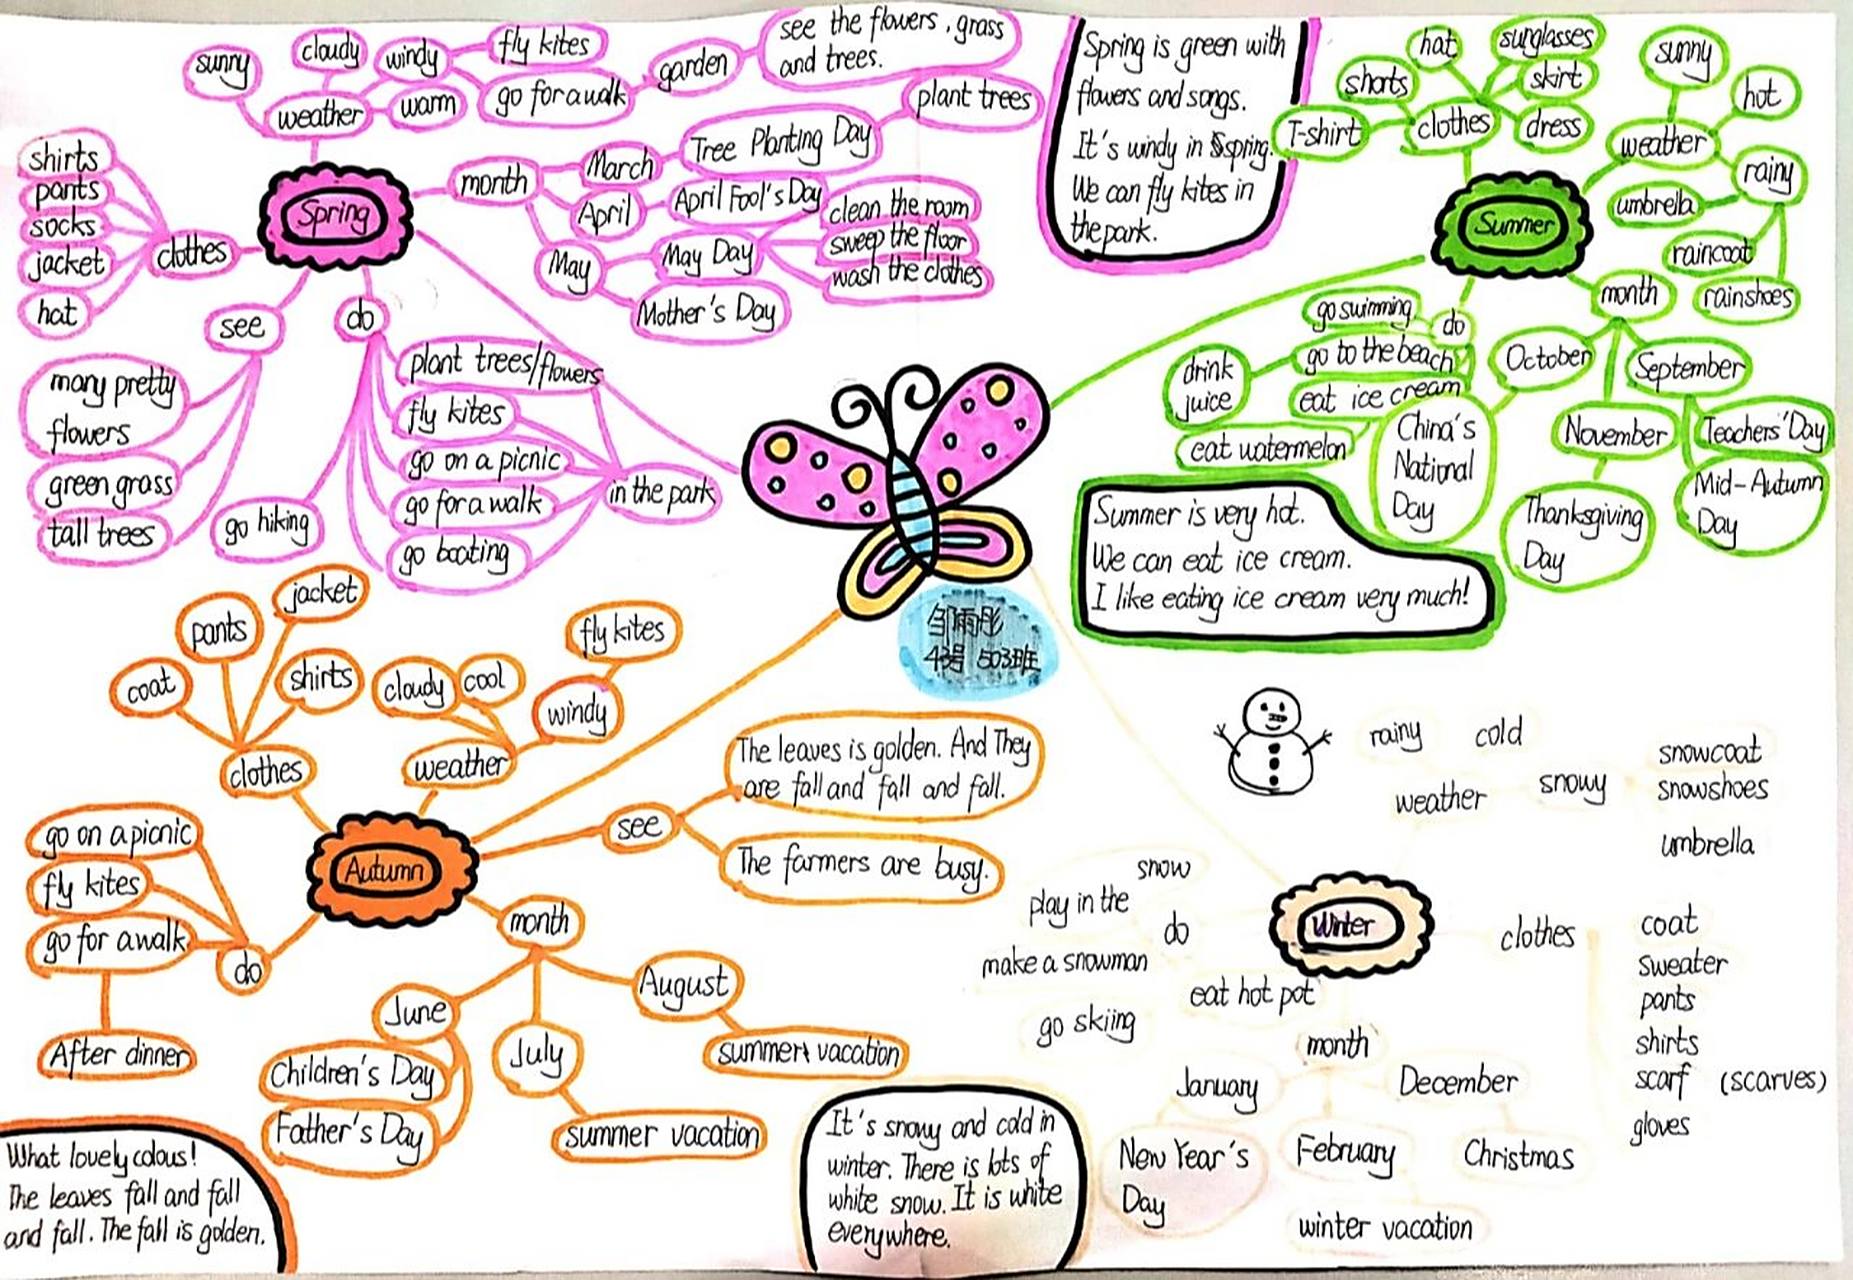 sunny
cloudy
windy
warm
weather
fly kites
go for a walk
garden
see the flowers, grass
and trees.
shirts
pants
socks
jacket
hat
clothes
Spring
month
March
Tree Planting Day
plant trees
April
April Fool's Day
May
May Day
clean the room
sweep the floor
wash the clothes
Mother's Day
see
many pretty
flowers
green grass
tall trees
do
go hiking
plant trees/flowers
fly kites
go on a picnic
go for a walk
go boating
in the park
Spring is green with
flowers and songs.
It's windy in spring.
We can fly kites in
the park.
hat
sunglasses
shorts
skirt
T-shirt
clothes
dress
sunny
hot
weather
rainy
umbrella
raincoat
rainshoes
Summer
month
go swimming
do
go to the beach
drink
juice
eat ice cream
eat watermelon
October
September
China's
National
Day
November
Teachers' Day
Mid-Autumn
Day
Thanksgiving
Day
Summer is very hot.
We can eat ice cream.
I like eating ice cream very much!
邹雨彤
43号 503班
jacket
pants
coat
shirts
clothes
cloudy
cool
windy
fly kites
weather
Autumn
see
The leaves is golden. And They
are fall and fall and fall.
The farmers are busy.
go on a picnic
fly kites
go for a walk
do
After dinner
month
June
Children's Day
Father's Day
July
summer vacation
August
summer vacation
What lovely colous!
The leaves fall and fall
and fall. The fall is golden.
rainy
cold
weather
snowy
snowcoat
snowshoes
umbrella
Winter
snow
play in the
do
make a snowman
eat hot pot
go skiing
clothes
coat
sweater
pants
shirts
scarf (scarves)
gloves
month
January
December
New Year's
Day
February
Christmas
winter vacation
It's snowy and cold in
winter. There is lots of
white snow. It is white
everywhere.